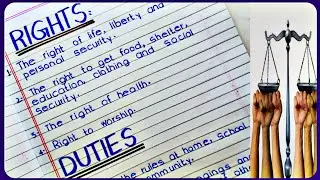 RIGHTS:
1. The right of life, liberty and
personal security.
2. The right to get food, shelter,
education, clothing and social
security.
3. The right of health.
4. Right to worship.
DUTIES
the rules at home, school
community.